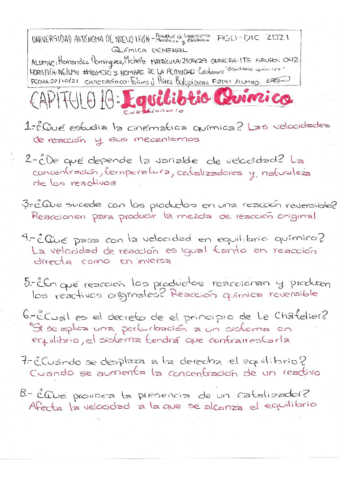 UNIVERSIDAD AUTÓNOMA DE NUEVO LEÓN - Facultad de Ingeniería Mecánica y Eléctrica AGO-DIC 2021
QUÍMICA GENERAL
ALUMNO: Hernández Domínguez, Michelle MATRÍCULA: CARRERA: ITS
HORA/DÍA: NÚMERO Y NOMBRE DE LA ACTIVIDAD "Equilibrio químico"
FECHA: CATEDRÁTICO: Pérez FIRMA ALUMNO
CAPÍTULO 18: Equilibrio Químico
Cuestionario
1.-¿Qué estudia la cinemática química? Las velocidades
de reacción y sus mecanismos
2.-¿De qué depende la variable de velocidad? La
concentración, temperatura, catalizadores y naturaleza
de los reactivos
3.-¿Que sucede con los productos en una reacción reversible?
Reaccionan para producir la mezcla de reacción original
4.-¿Qué pasa con la velocidad en equilibrio químico?
La velocidad de reacción es igual tanto en reacción
directa como en inversa
5.-¿En qué reacción los productos reaccionan y producen
los reactivos originales? Reacción química reversible
6.-¿Cuál es el decreto de el principio de Le Châtelier?
Si se aplica una perturbación a un sistema en
equilibrio, el sistema tendrá que contrarrestarla
7.-¿Cuándo se desplaza a la derecha el equilibrio?
Cuando se aumenta la concentración de un reactivo
8.-¿Qué provoca la presencia de un catalizador?
Afecta la velocidad a la que se alcanza el equilibrio